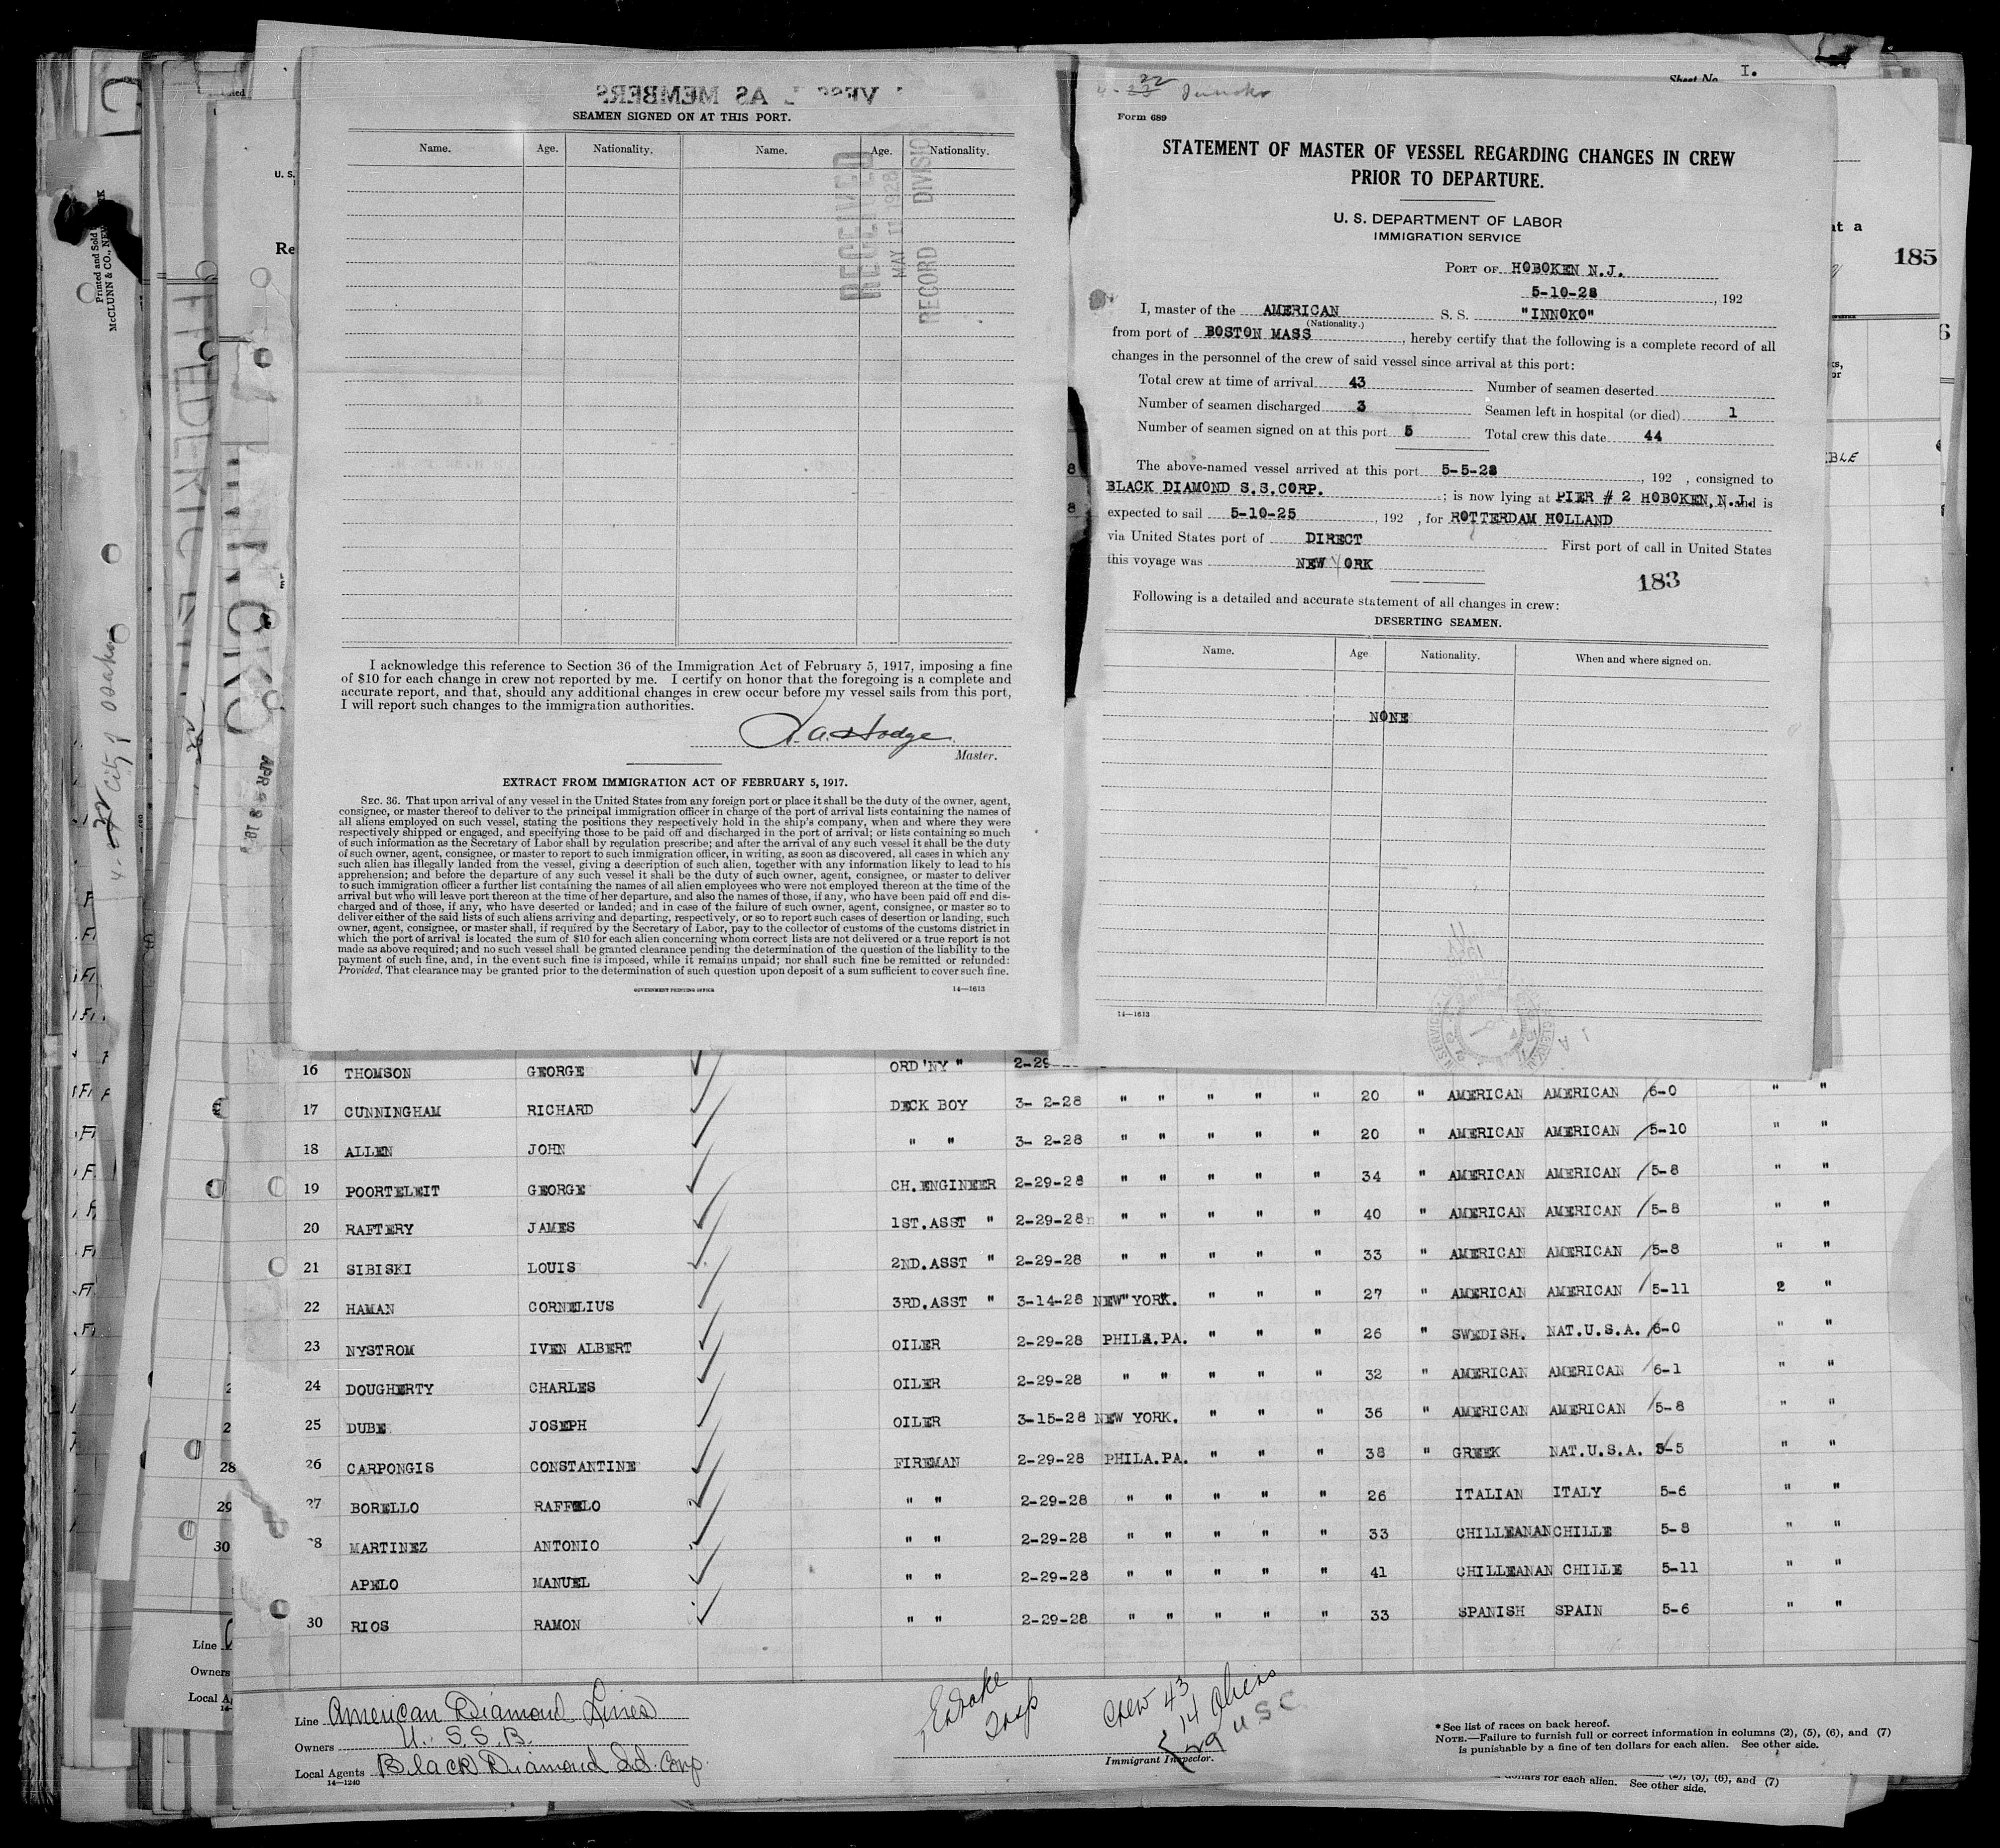 SEAMEN SIGNED ON AT THIS PORT.
Name. Age. Nationality. Name. Age. Nationality.
RECEIVED
MAY 11 1928
RECORD DIVISION
I acknowledge this reference to Section 36 of the Immigration Act of February 5, 1917, imposing a fine
of $10 for each change in crew not reported by me. I certify on honor that the foregoing is a complete and
accurate report, and that, should any additional changes in crew occur before my vessel sails from this port,
I will report such changes to the immigration authorities.
Hodge
Master.
EXTRACT FROM IMMIGRATION ACT OF FEBRUARY 5, 1917.
SEC. 36. That upon arrival of any vessel in the United States from any foreign port or place it shall be the duty of the owner, agent,
consignee, or master thereof to deliver to the principal immigration officer in charge of the port of arrival lists containing the names of
all aliens employed on such vessel, stating the positions they respectively hold in the ship's company, when and where they were
respectively shipped or engaged, and specifying those to be paid off and discharged in the port of arrival; or lists containing so much
of such information as the Secretary of Labor shall by regulation prescribe; and after the arrival of any such vessel it shall be the duty
of such owner, agent, consignee, or master to report to such immigration officer, in writing, as soon as discovered, all cases in which any
such alien has illegally landed from the vessel, giving a description of such alien, together with any information likely to lead to his
apprehension; and before the departure of any such vessel it shall be the duty of such owner, agent, consignee, or master to deliver
to such immigration officer a further list containing the names of all alien employees who were not employed thereon at the time of the
arrival but who will leave port thereon at the time of her departure, and also the names of those, if any, who have been paid off and dis-
charged and of those, if any, who have deserted or landed; and in case of the failure of such owner, agent, consignee, or master so to
deliver either of the said lists of such aliens arriving and departing, respectively, or so to report such cases of desertion or landing, such
owner, agent, consignee, or master shall, if required by the Secretary of Labor, pay to the collector of customs of the customs district in
which the port of arrival is located the sum of $10 for each alien concerning whom correct lists are not delivered or a true report is not
made as above required; and no such vessel shall be granted clearance pending the determination of the question of the liability to the
payment of such fine, and, in the event such fine is imposed, while it remains unpaid; nor shall such fine be remitted or refunded:
Provided, That clearance may be granted prior to the determination of such question upon deposit of a sum sufficient to cover such fine.
GOVERNMENT PRINTING OFFICE 14—1613
Sheet No. I.
4-22 Innoko
Form 689
STATEMENT OF MASTER OF VESSEL REGARDING CHANGES IN CREW
PRIOR TO DEPARTURE.
U. S. DEPARTMENT OF LABOR
IMMIGRATION SERVICE
PORT OF HOBOKEN N.J.
5-10-28, 192
I, master of the AMERICAN S. S. "INNOKO"
(Nationality.)
from port of BOSTON MASS, hereby certify that the following is a complete record of all
changes in the personnel of the crew of said vessel since arrival at this port:
Total crew at time of arrival 43 Number of seamen deserted
Number of seamen discharged 3 Seamen left in hospital (or died) 1
Number of seamen signed on at this port 5 Total crew this date 44
The above-named vessel arrived at this port 5-5-28, 192 , consigned to
BLACK DIAMOND S.S.CORP.; is now lying at PIER # 2 HOBOKEN, N.J. and is
expected to sail 5-10-25, 192 , for ROTTERDAM HOLLAND
via United States port of DIRECT First port of call in United States
this voyage was NEW YORK
183
Following is a detailed and accurate statement of all changes in crew:
DESERTING SEAMEN.
Name. Age. Nationality. When and where signed on.
NONE
14—1613
185
16 THOMSON GEORGE ORD'NY " 2-29
17 CUNNINGHAM RICHARD DECK BOY 3- 2-28 " " " " " 20 " AMERICAN AMERICAN 6-0 " "
18 ALLEN JOHN " " 3- 2-28 " " " " " 20 " AMERICAN AMERICAN 5-10 " "
19 POORTELEIT GEORGE CH.ENGINEER 2-29-28 " " " " " 34 " AMERICAN AMERICAN 5-8 " "
20 RAFTERY JAMES 1ST.ASST " 2-29-28 " " " " " 40 " AMERICAN AMERICAN 5-8 " "
21 SIBISKI LOUIS 2ND.ASST " 2-29-28 " " " " " 33 " AMERICAN AMERICAN 5-8 " "
22 HAMAN CORNELIUS 3RD.ASST " 3-14-28 NEW YORK. " " " 27 " AMERICAN AMERICAN 5-11 2 "
23 NYSTROM IVEN ALBERT OILER 2-29-28 PHILA.PA. " " " 26 " SWEDISH. NAT.U.S.A. 6-0 " "
24 DOUGHERTY CHARLES OILER 2-29-28 " " " " " 32 " AMERICAN AMERICAN 6-1 " "
25 DUBE JOSEPH OILER 3-15-28 NEW YORK. " " " 36 " AMERICAN AMERICAN 5-8 " "
26 CARPONGIS CONSTANTINE FIREMAN 2-29-28 PHILA.PA. " " " 38 " GREEK NAT.U.S.A. 5-5 " "
27 BORELLO RAFFELO " " 2-29-28 " " " " " 26 ITALIAN ITALY 5-6 " "
28 MARTINEZ ANTONIO " " 2-29-28 " " " " " 33 CHILLEANAN CHILLE 5-8 " "
APELO MANUEL " " 2-29-28 " " " " " 41 CHILLEANAN CHILLE 5-11 " "
30 RIOS RAMON " " 2-29-28 " " " " " 33 SPANISH SPAIN 5-6 " "
Line American Diamond Lines
Owners U. S. S. B.
Local Agents Black Diamond S.S. Corp.
14—1240
Crew 43
14 Aliens
29 U.S.C.
Immigrant Inspector.
*See list of races on back hereof.
NOTE.—Failure to furnish full or correct information in columns (2), (5), (6), and (7)
is punishable by a fine of ten dollars for each alien. See other side.
dollars for each alien. See other side.